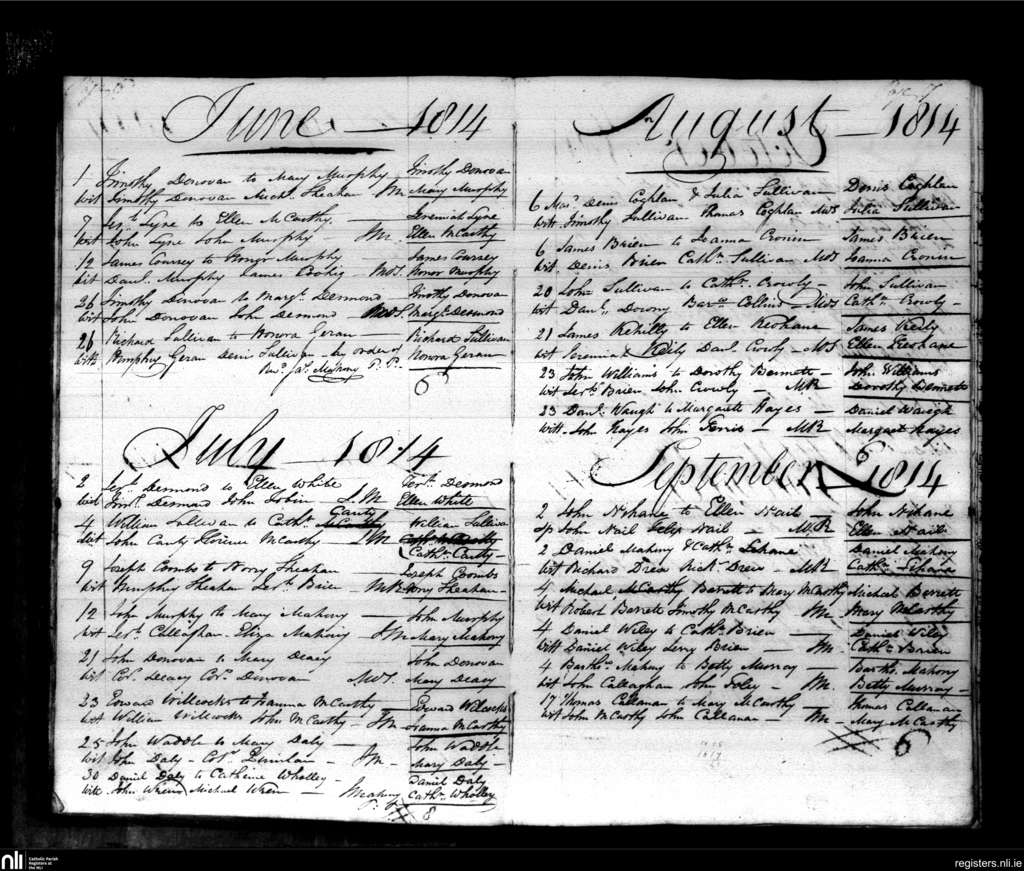 June — 1814
1 Timothy Donovan to Mary Murphy Timothy Donovan
Wit Timothy Donovan Sheahan JM Mary Murphy
7 Jerh. Lyne to Ellen McCarthy — Jeremiah Lyne
Wit John Lyne John Murphy — JM. Ellen McCarthy
12 James Coursey to Honor Murphy James Coursey
Wit Danl. Murphy James MDS. Honor Murphy
26 Timothy Donovan to Margt. Desmond Timothy Donovan
Wit John Donovan John Desmond Margt. Desmond
26 Richard Sullivan to Honora Geran — Richard Sullivan
Witt. Humphry Geran Denis Sullivan — by order of Honora Geran
Revd. Jas. Mahony P.P.
July — 1814
2 Jerh. Desmond to Ellen White Jerh. Desmond
Wit Desmond John Tobin — J.M Ellen White
Canty
4 William Sullivan to Cath. William Sullivan
Wit John Canty Florence McCarthy — JM
Cath. Canty —
9 Joseph Coombs to Nory Sheahan — Joseph Coombs
Wit Humphry Sheahan Jerh. Brien — MR Nory Sheahan —
12 John Murphy to Mary Mahony — John Murphy
Wit Jerh. Callaghan Eliza Mahony — JM Mary Mahony
21 John Donovan to Mary Deacy John Donovan
Wit Cors. Deacy Cors. Donovan MDS. Mary Deacy
23 Edward Willcocks to Hanna McCarthy — Edward Willcocks
Wit William Willcocks John McCarthy — JM Hanna McCarthy
25 John Waddle to Mary Daly — John Waddle
Wit John Daly — JM — Mary Daly —
30 Daniel Daly to Catherine Wholley — Daniel Daly
Witt. John Michael Wren — Cath. Wholley
8
August — 1814
6 Denis Coghlan & Julia Sullivan — Denis Coghlan
Witt. Timothy Sullivan Thomas Coghlan MDS Julia Sullivan
6 James Brien to Joanna Cronin James Brien
Wit. Denis Brien Cath. Sullivan MDS Joanna Cronin
20 John Sullivan to Cath. Crowly — John Sullivan
Wit Danl. Downy Collins — MDS Cath. Crowly —
21 James Rehilly to Ellen Keohane James Reily
Wit Jeremiah Reily Danl. MDS Ellen Keohane
23 John Williams to Dorothy Bennett — John Williams
Wit Jerh. Brien John Crowly — MR Dorothy Bennett
23 Danl. Waugh to Margarett Hayes — Daniel Waugh
Witt. John Hayes John — MR Margaret Hayes
September 1814
2 John Nihane to Ellen Nail — John Nihane
Sp John Nail Nail — MR Ellen Nail —
2 Daniel Mahony & Cath. Lehane Daniel Mahony
Wit Richard Drew Richd. Drew — MR Cath. Lehane
4 Michael Barrett to Mary McCarthy Michael Barrett
Wit Robert Barrett Timothy McCarthy JM Mary McCarthy
4 Daniel Wiley to Cath. Brien — Daniel Wiley
Witt Daniel Wiley Brien — JM. Cath. Brien
4 Barthw. Mahony to Betty Murray — Barthw. Mahony
Wit John Callaghan John Foley — JM. Betty Murray —
17 Thomas Callanan to Mary McCarthy — Thomas Callanan
Wit John McCarthy John Callanan — JM — Mary McCarthy
6
nli
Catholic Parish
Registers at
the NLI
registers.nli.ie